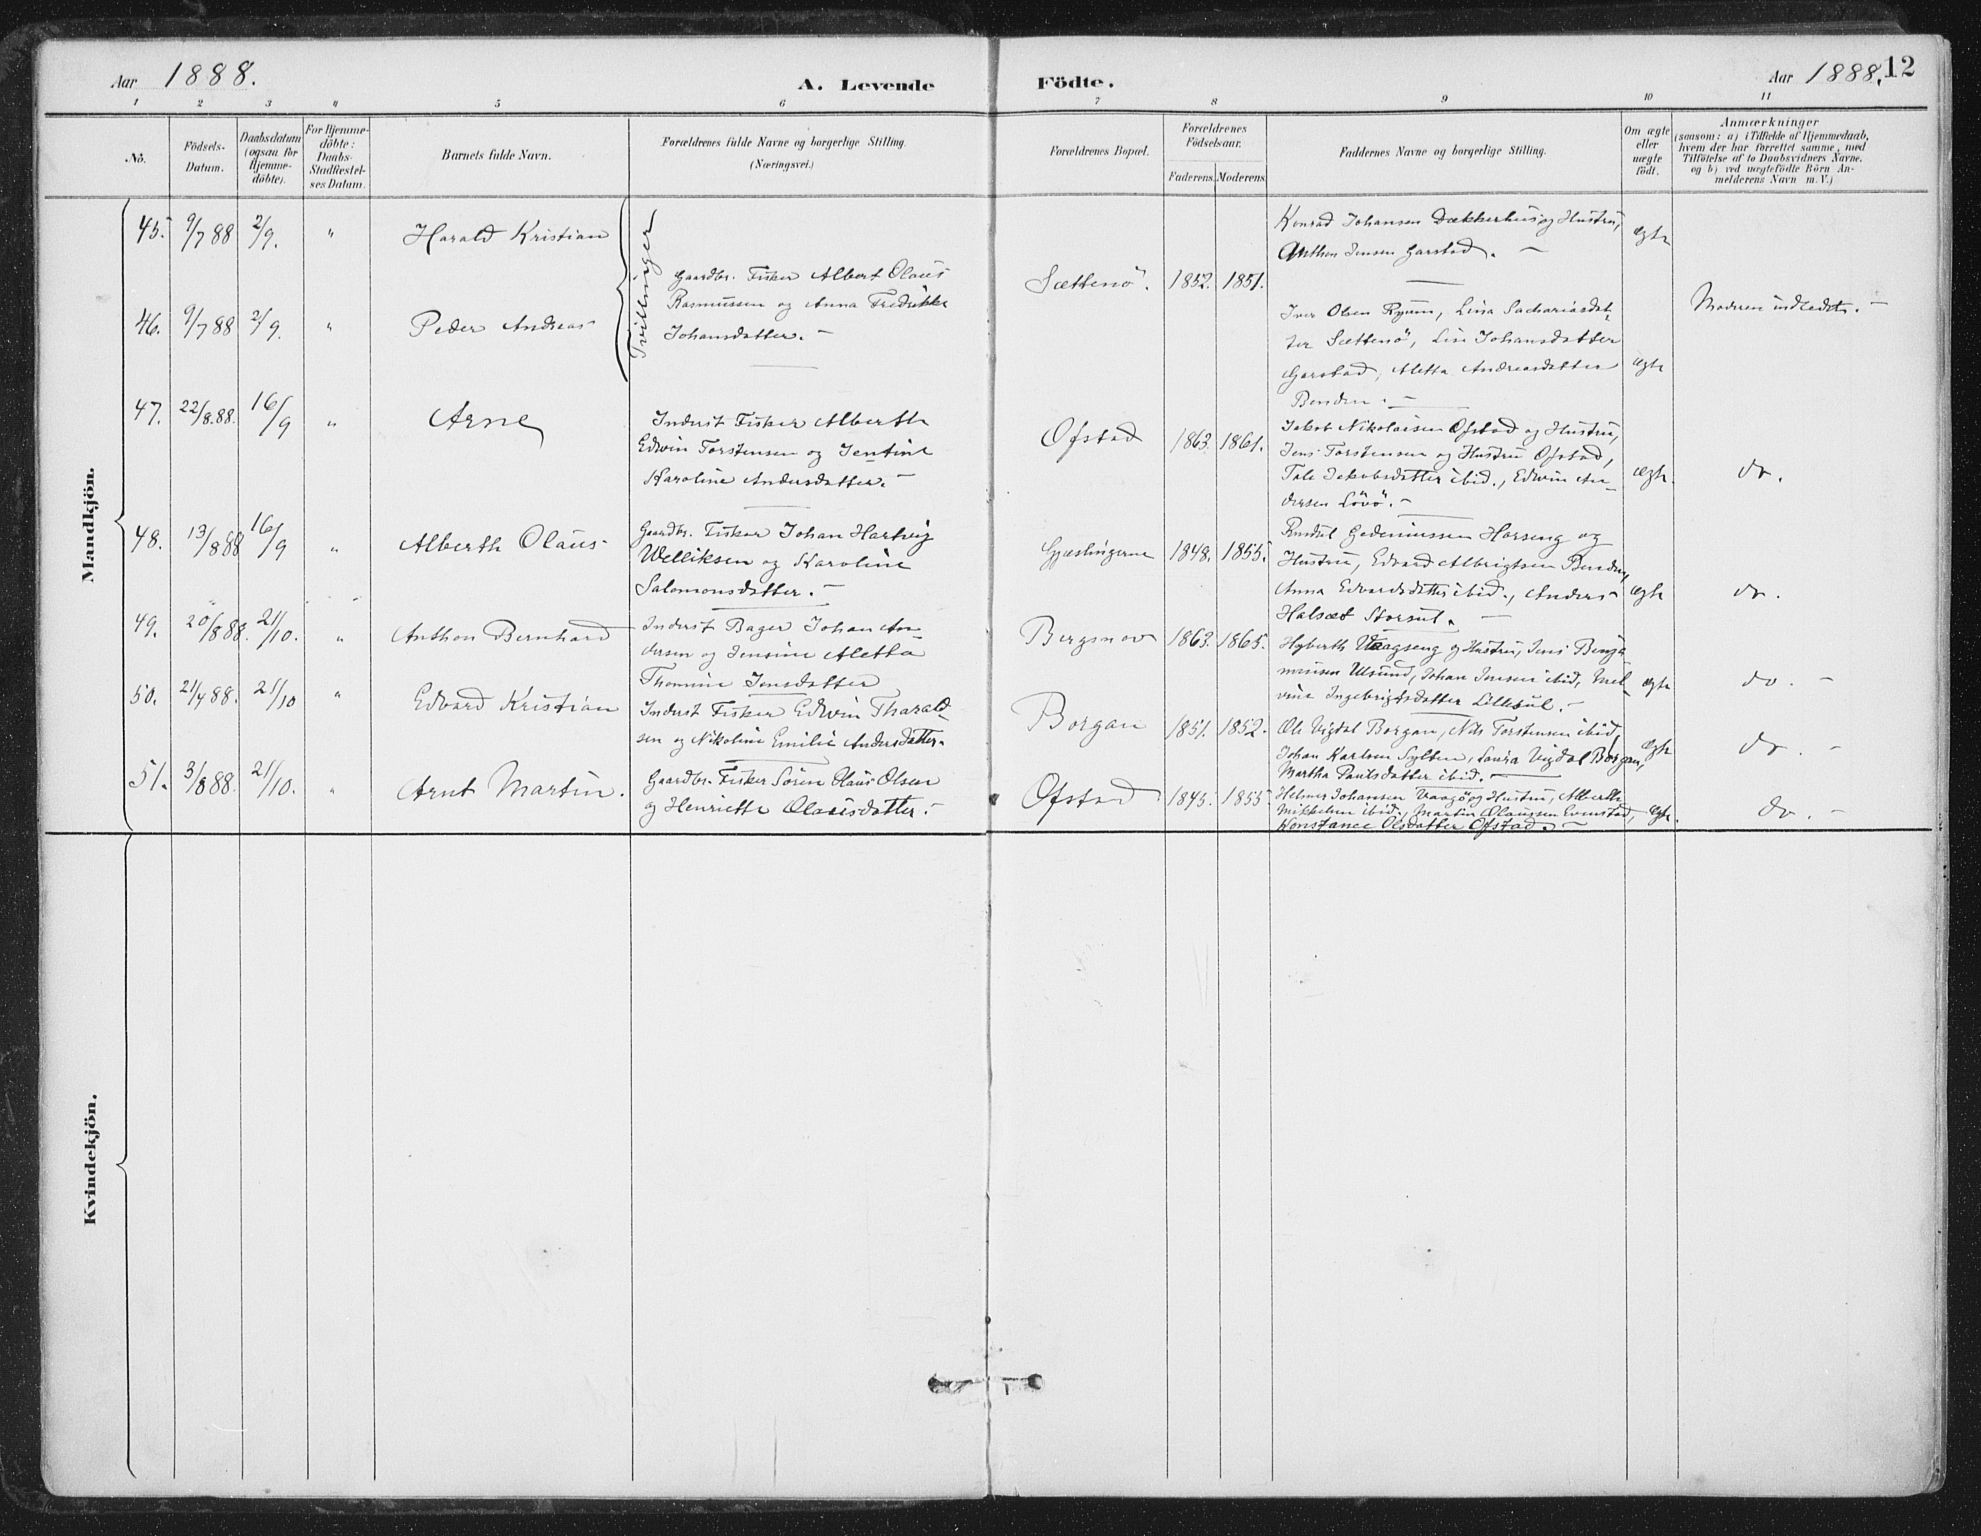 Aar 1888. A. Levende Födte. Aar 1888. 12
1 2 3 4 5 6 7 8 9 10 11
No.
Födsels-
Datum.
Daabsdatum
(ogsaa for
Hjemme-
döbte).
For Hjemme-
döbte:
Daabs-
Stadfæstel-
ses Datum.
Barnets fulde Navn.
Forældrenes fulde Navne og borgerlige Stilling.
(Næringsvei.)
Forældrenes Bopæl.
Forældrenes
Födselsaar.
Faderens. Moderens.
Faddernes Navne og borgerlige Stilling.
Om ægte
eller
uægte
födt.
Anmærkninger
(saasom: a) i Tilfælde af Hjemmedaab,
hvem der har forrettet samme, med
Tilföielse af to Daabsvidners Navne.
og b) ved uægtefödte Börn An-
melderens Navn m. V.)
Mandkjön.
45. 9/7 88 2/9. " Harald Kristian
Tvillinger
Gaardbr. Fisker Albert Olaus
Rasmussen og Anna Fredrikke
Johansdatter. —
Sættenö. 1852. 1851.
Konrad Johansen Dækkerhus og Hustru,
Anthon Jensen Garstad. —
ægte
46. 9/7 88 2/9. " Peder Andreas
Iver Olsen Ryum, Lina Sachariasdat-
ter Sættenö, Lise Johansdatter
Garstad, Aletta Andreasdatter
Bondö. —
ægte
Moderen indledet. —
47. 22/8. 88. 16/9 " Arne
Inderst Fisker Alberth
Edvin Torstensen og Jentine
Karoline Andersdatter. —
Ofstad 1863. 1861.
Jakob Nikolaisen Ofstad og Hustru,
Jens Torstensen og Hustru Ofstad,
Tale Jakobsdatter ibid., Edwin An-
dersen Lövö. —
ægte. do.
48. 13/8 88 16/9 " Alberth Olaus
Gaardbr. Fisker Johan Hartvig
Welliksen og Karoline
Salomonsdatter. —
Gjæslingerne 1848. 1855.
Gedeniussen Horseng og
Hustru, Edvard Albrigtsen
Anna Edvardsdatter ibid., Anders
Halsæt Storsul.
ægte do.
49. 20/8 88. 21/10. " Anthon Bernhard
Inderst Bager Johan An-
dersen og Jensine Aletta
Thomine Jensdatter
Bergsnov 1863. 1865.
Hyberth Vaagseng og Hustru, Jens Benja-
minsen Ulsund, Johan Jensen ibid, Mel-
vine Ingebrigtsdatter Lillesul. —
ægte do. —
50. 21/4 88. 21/10 " Edvard Kristian
Inderst Fisker Edvin Tharald-
sen og Nikoline Emilie Andersdatter.
Borgan 1851. 1852.
Ole Vigdal Borgan, Nils Torstensen ibid,
Johan Karlsen Sylten, Laura Vigdal Borgan,
Martha Paulsdatter ibid. —
ægte do. —
51. 3/8 88. 21/10. " Arnt Martin.
Gaardbr. Fisker Sören Olaus Olsen
og Henriette Olausdatter. —
Ofstad 1845. 1855
Helmer Johansen Vaagö og Hustru, Alberth
Mikkelsen ibid., Martin Olaussen Evenstad,
Konstance Olsdatter Ofstad. —
ægte. do. —
Kvindekjön.